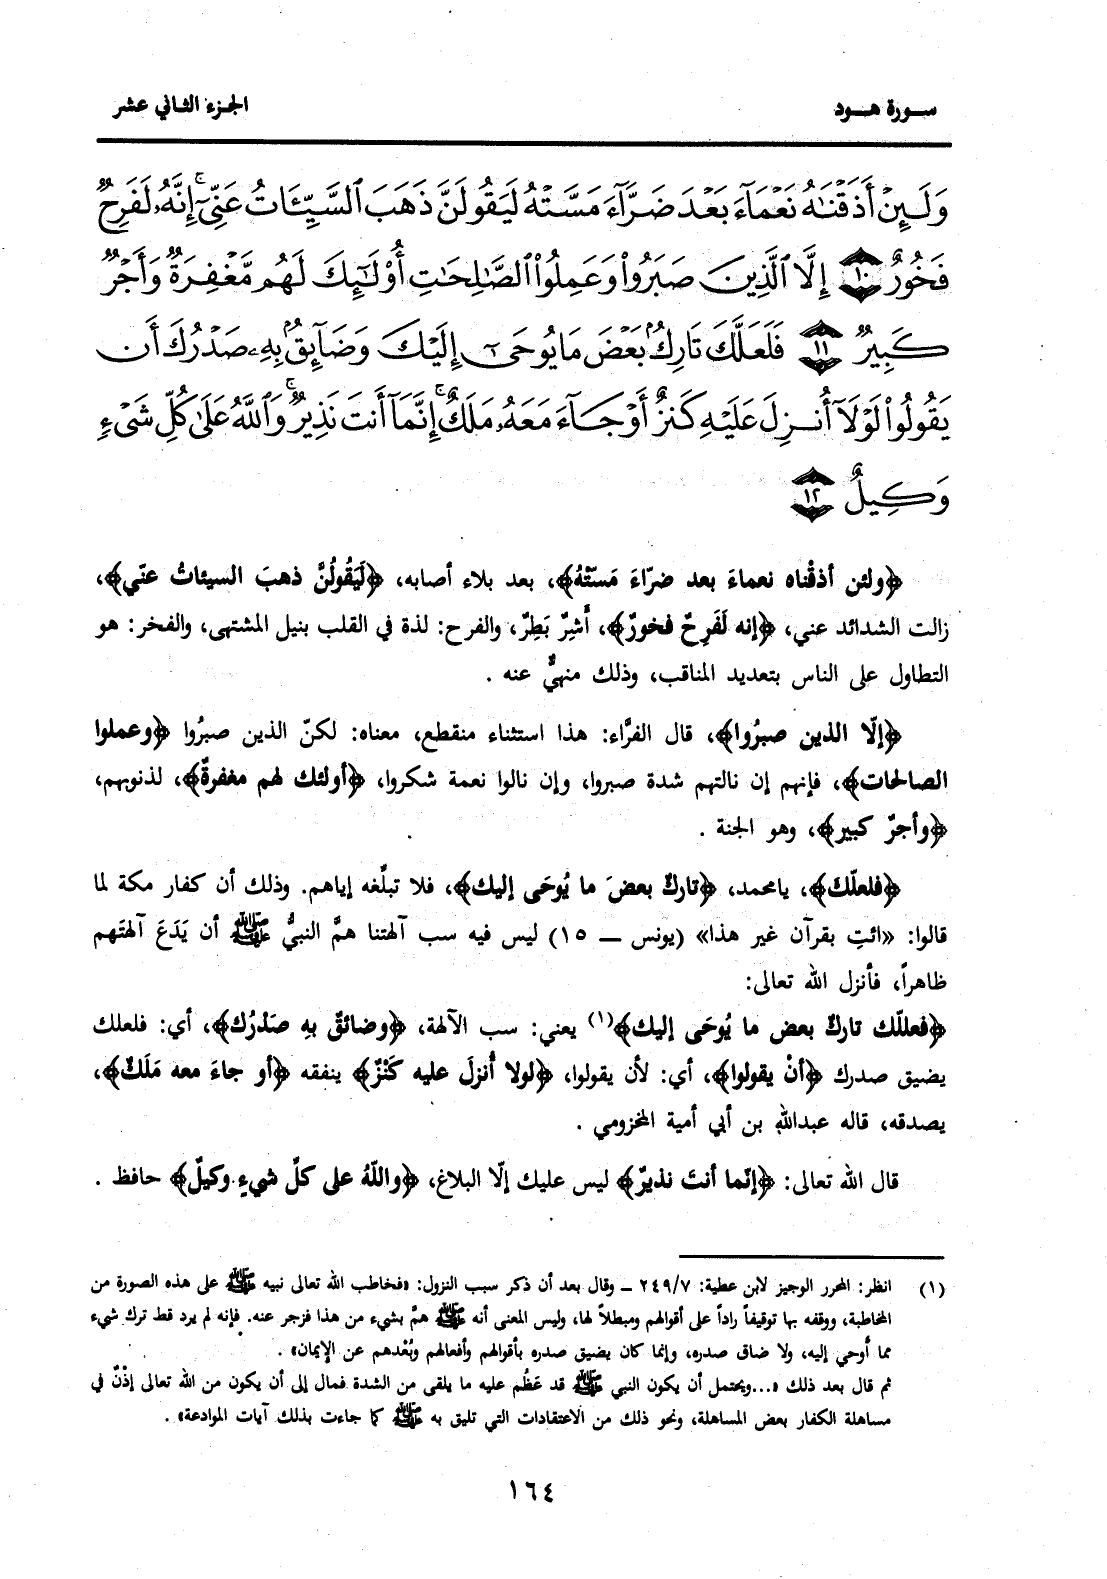 سورة هود
الجزء الثاني عشر
وَلَئِنْ أَذَقْنَٰهُ نَعْمَآءَ بَعْدَ ضَرَّآءَ مَسَّتْهُ لَيَقُولَنَّ ذَهَبَ ٱلسَّيِّـَٔاتُ عَنِّىٓ ۚ إِنَّهُۥ لَفَرِحٌ
فَخُورٌ ١٠ إِلَّا ٱلَّذِينَ صَبَرُوا۟ وَعَمِلُوا۟ ٱلصَّٰلِحَٰتِ أُو۟لَٰٓئِكَ لَهُم مَّغْفِرَةٌ وَأَجْرٌ
كَبِيرٌ ١١ فَلَعَلَّكَ تَارِكٌۢ بَعْضَ مَا يُوحَىٰٓ إِلَيْكَ وَضَآئِقٌۢ بِهِۦ صَدْرُكَ أَن
يَقُولُوا۟ لَوْلَآ أُنزِلَ عَلَيْهِ كَنزٌ أَوْ جَآءَ مَعَهُۥ مَلَكٌ ۚ إِنَّمَآ أَنتَ نَذِيرٌ ۚ وَٱللَّهُ عَلَىٰ كُلِّ شَىْءٍ
وَكِيلٌ ١٢
﴿ولئن أذقْناه نعماءَ بعد ضرّاءَ مَسَّتْهُ﴾، بعد بلاء أصابه، ﴿لَيَقُولُنَّ ذهبَ السيئاتُ عنّي﴾،
زالت الشدائد عني، ﴿إنه لَفَرِحٌ فخورٌ﴾، أَشِرٌ بَطِرٌ، والفرح: لذة في القلب بنيل المشتهى، والفخر: هو
التطاول على الناس بتعديد المناقب، وذلك منهيٌّ عنه .
﴿إلّا الذين صبرُوا﴾، قال الفرَّاء: هذا استثناء منقطع، معناه: لكنّ الذين صبرُوا ﴿وعملوا
الصالحات﴾، فإنهم إن نالتهم شدة صبروا، وإن نالوا نعمة شكروا، ﴿أولئك لهم مغفرةٌ﴾، لذنوبهم،
﴿وأجرٌ كبير﴾، وهو الجنة .
﴿فلعلّك﴾، يامحمد، ﴿تاركٌ بعضَ ما يُوحَى إليك﴾، فلا تبلّغه إياهم. وذلك أن كفار مكة لما
قالوا: «ائتِ بقرآن غير هذا» (يونس ــ ١٥) ليس فيه سب آلهتنا همَّ النبيُّ ﷺ أن يَدَعَ آلهتَهم
ظاهراً، فأنزل الله تعالى:
﴿فعللّك تاركٌ بعض ما يُوحَى إليك﴾(١) يعني: سب الآلهة، ﴿وضائقٌ بهِ صَدْرُك﴾، أي: فلعلك
يضيق صدرك ﴿أنْ يقولوا﴾، أي: لأن يقولوا، ﴿لولا أُنزلَ عليه كَنْزٌ﴾ ينفقه ﴿أو جاءَ معه مَلَكٌ﴾،
يصدقه، قاله عبدالله بن أبي أمية المخزومي .
قال الله تعالى: ﴿إنّما أنتَ نذيرٌ﴾ ليس عليك إلّا البلاغ، ﴿واللّهُ على كلّ شيءٍ وكيلٌ﴾ حافظ .
(١) انظر: المحرر الوجيز لابن عطية: ٢٤٩/٧ ــ وقال بعد أن ذكر سبب النزول: «فخاطب الله تعالى نبيه ﷺ على هذه الصورة من
المخاطبة، ووقفه بها توقيفاً راداً على أقوالهم ومبطلاً لها، وليس المعنى أنه ﷺ همَّ بشيء من هذا فزجر عنه. فإنه لم يرد قط ترك شيء
مما أُوحي إليه، ولا ضاق صدره، وإنما كان يضيق صدره بأقوالهم وأفعالهم وبُعْدهم عن الإيمان» .
ثم قال بعد ذلك «...ويحتمل أن يكون النبي ﷺ قد عَظُم عليه ما يلقى من الشدة فمال إلى أن يكون من الله تعالى إذْنٌ في
مساهلة الكفار بعض المساهلة، ونحو ذلك من الاعتقادات التي تليق به ﷺ كما جاءت بذلك آيات الموادعة» .
١٦٤